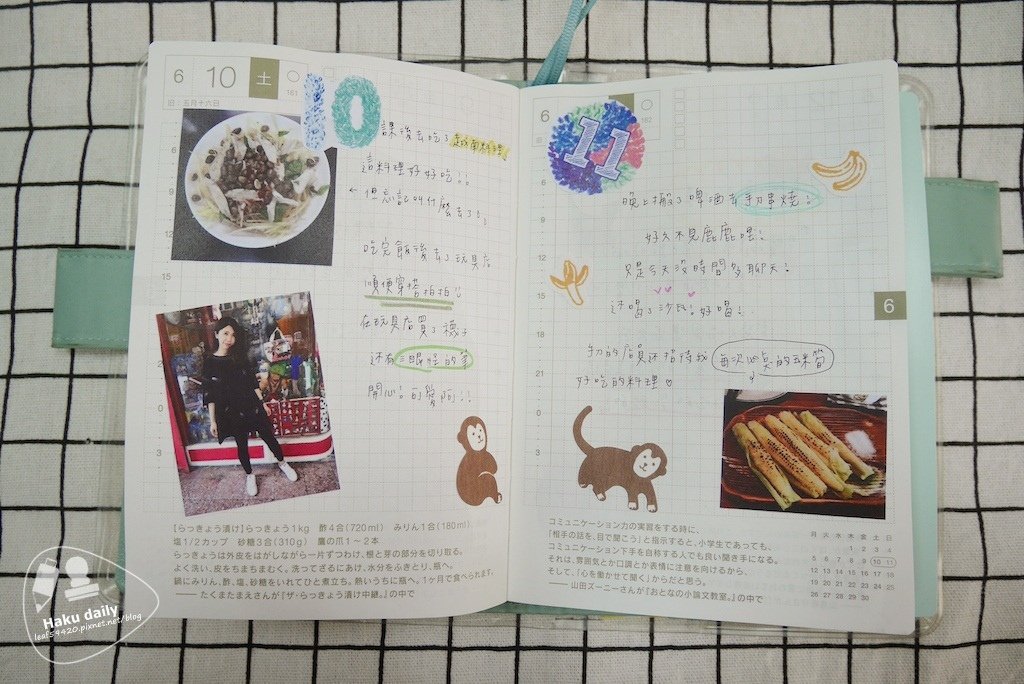 6 10 土
161
旧:五月十六日
10
課後去吃了越南料理
這料理好好吃!!
←但忘記叫什麼去了
吃完飯後去了玩具店
順便穿搭拍拍
在玩具店買了襪子
還有三眼怪的
開心!可愛阿!!
6
9
15
0
3
【らっきょう漬け】らっきょう1kg 酢4合(720ml) みりん1合(180ml)、
塩1/2カップ 砂糖3合(310g) 鷹の爪1〜2本
らっきょうは外皮をはがしながら一片ずつわけ、根と芽の部分を切り取る。
よく洗い、皮をちまちまむく。洗ってざるにあけ、水分をふきとり、瓶へ。
鍋にみりん、酢、塩、砂糖をいれてひと煮立ち。熱いうちに瓶へ。1ヶ月で食べられます。
―― たくまたまえさんが『ザ・らっきょう漬け中継。』の中で
6
162
11
晚上搬了啤酒去手刀串燒!
好久不見鹿鹿嘿!
只是今天沒時間多聊天!
還喝了沙瓦!好喝!
店員還招待我
好吃的料理♡
6
9
12
15
18
21
0
3
6
コミュニケーション力の実習をする時に、
「相手の話を、目で聞こう」と指示すると、小学生であっても、
コミュニケーション下手を自称する人でも良い聞き手になる。
それは、雰囲気とか口調とか表情に注意を向けるから、
そして、「心を働かせて聞く」からだと思う。
―― 山田ズーニーさんが『おとなの小論文教室。』の中で
月 火 水 木 金 土 日
1 2 3 4
5 6 7 8 9 10 11
12 13 14 15 16 17 18
19 20 21 22 23 24 25
26 27 28 29 30
Haku daily
leaf59420.pixnet.net/blog